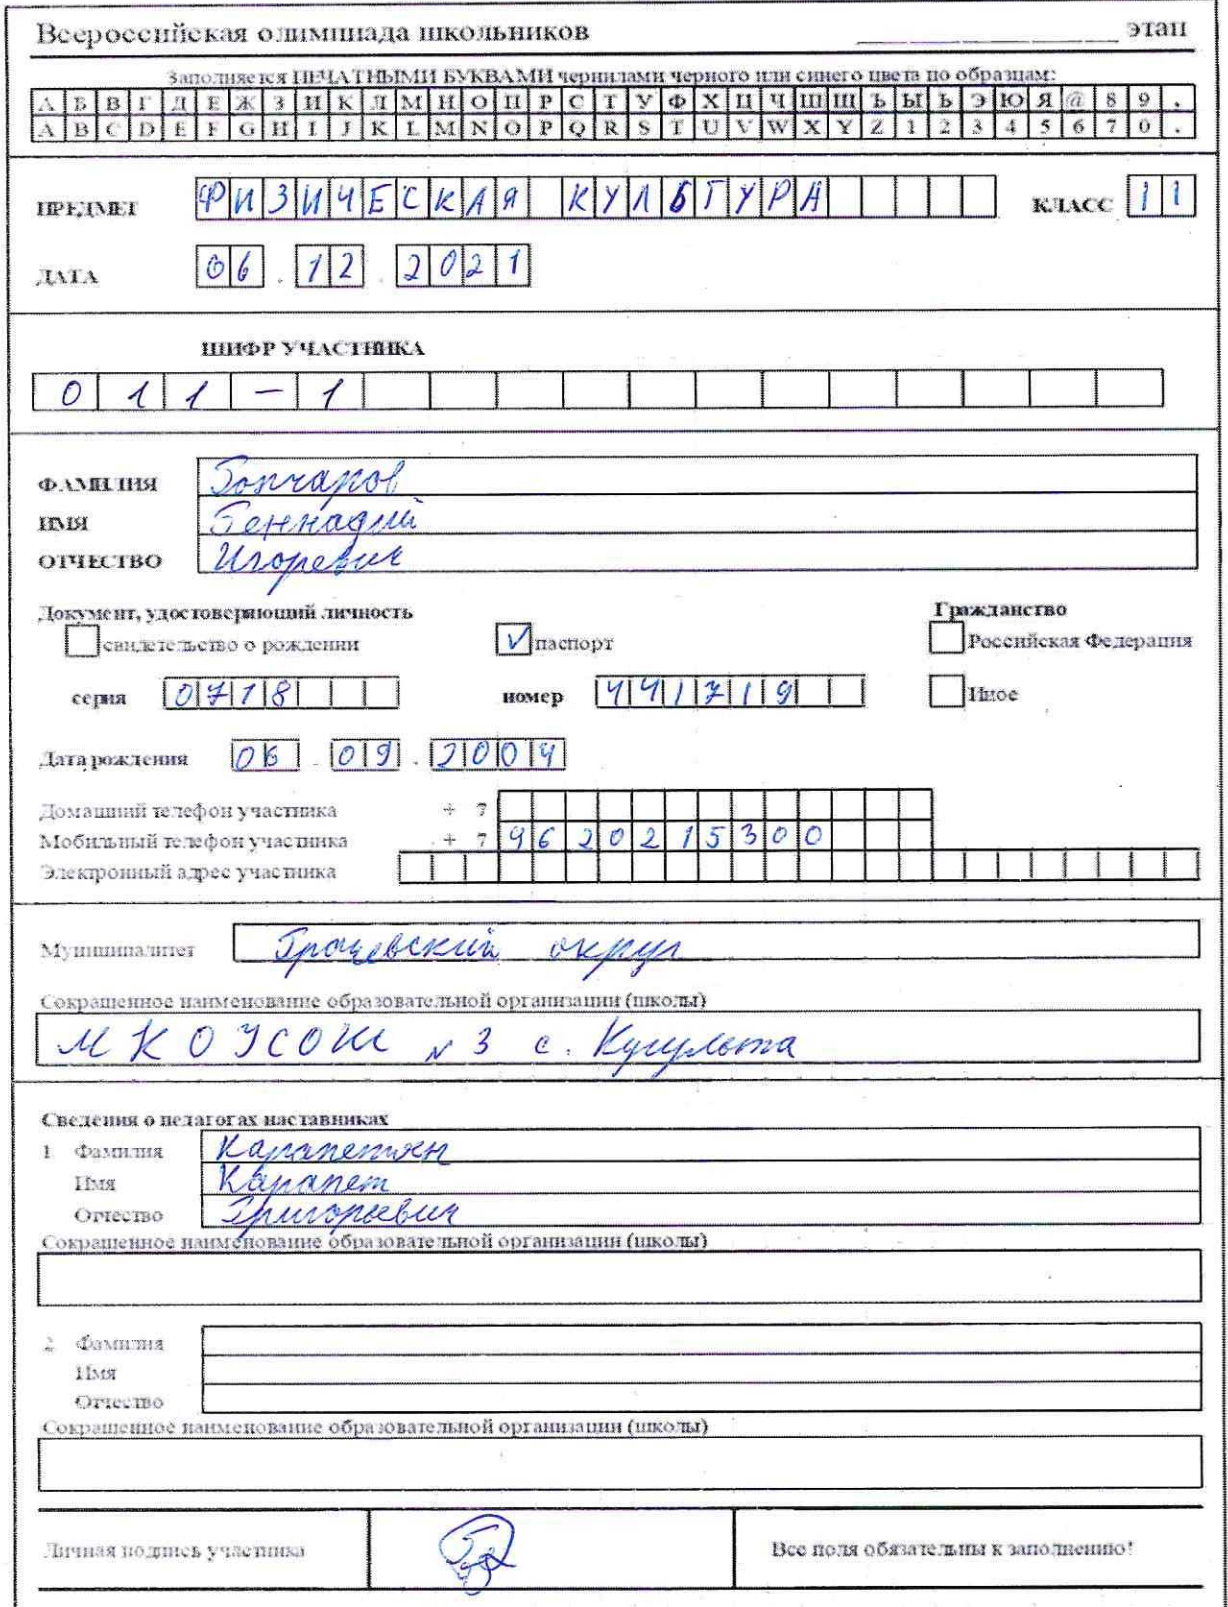 Всероссийская олимпиада школьников этап
Заполняется ПЕЧАТНЫМИ БУКВАМИ чернилами черного или синего цвета по образцам:
А Б В Г Д Е Ж З И К Л М Н О П Р С Т У Ф Х Ц Ч Ш Щ Ъ Ы Ь Э Ю Я @ 8 9 ,
A B C D E F G H I J K L M N O P Q R S T U V W X Y Z 1 2 3 4 5 6 7 0 .
ПРЕДМЕТ ФИЗИЧЕСКАЯ КУЛЬТУРА КЛАСС 11
ДАТА 06 . 12 . 2021
ШИФР УЧАСТНИКА
011-1
ФАМИЛИЯ Гончаров
ИМЯ Геннадий
ОТЧЕСТВО Игоревич
Документ, удостоверяющий личность Гражданство
свидетельство о рождении паспорт Российская Федерация
серия 0718 номер 441719 Иное
Дата рождения 06 . 09 . 2004
Домашний телефон участника + 7
Мобильный телефон участника + 7 9620215300
Электронный адрес участника
Муниципалитет Грачевский округ
Сокращенное наименование образовательной организации (школы)
МКОУСОШ №3 с. Кугульта
Сведения о педагогах наставниках
1 Фамилия Карапетян
Имя Карапет
Отчество Григорьевич
Сокращенное наименование образовательной организации (школы)
2 Фамилия
Имя
Отчество
Сокращенное наименование образовательной организации (школы)
Личная подпись участника Все поля обязательны к заполнению!